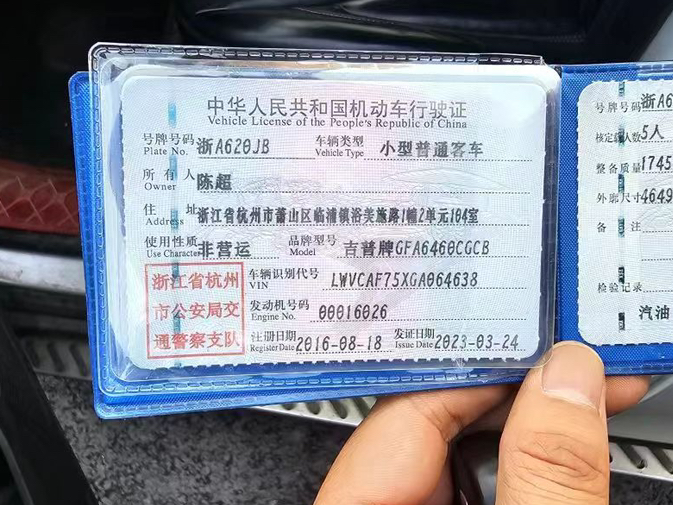 中华人民共和国机动车行驶证
Vehicle License of the People's Republic of China
号牌号码 浙A620JB 车辆类型 小型普通客车
Plate No. Vehicle Type
所有人 陈超
Owner
住址 浙江省杭州市萧山区临浦镇浴美施路1幢2单元104室
Address
使用性质 非营运 品牌型号 吉普牌GFA6460CGCB
Use Character Model
浙江省杭州
市公安局交
通警察支队
车辆识别代号 LWVCAF75XGA064638
VIN
发动机号码 00016026
Engine No.
注册日期 2016-08-18 发证日期 2023-03-24
Register Date Issue Date
号牌号码 浙A6
核定载人数 5人
整备质量 1745
外廓尺寸 4649
备注
检验记录
汽油